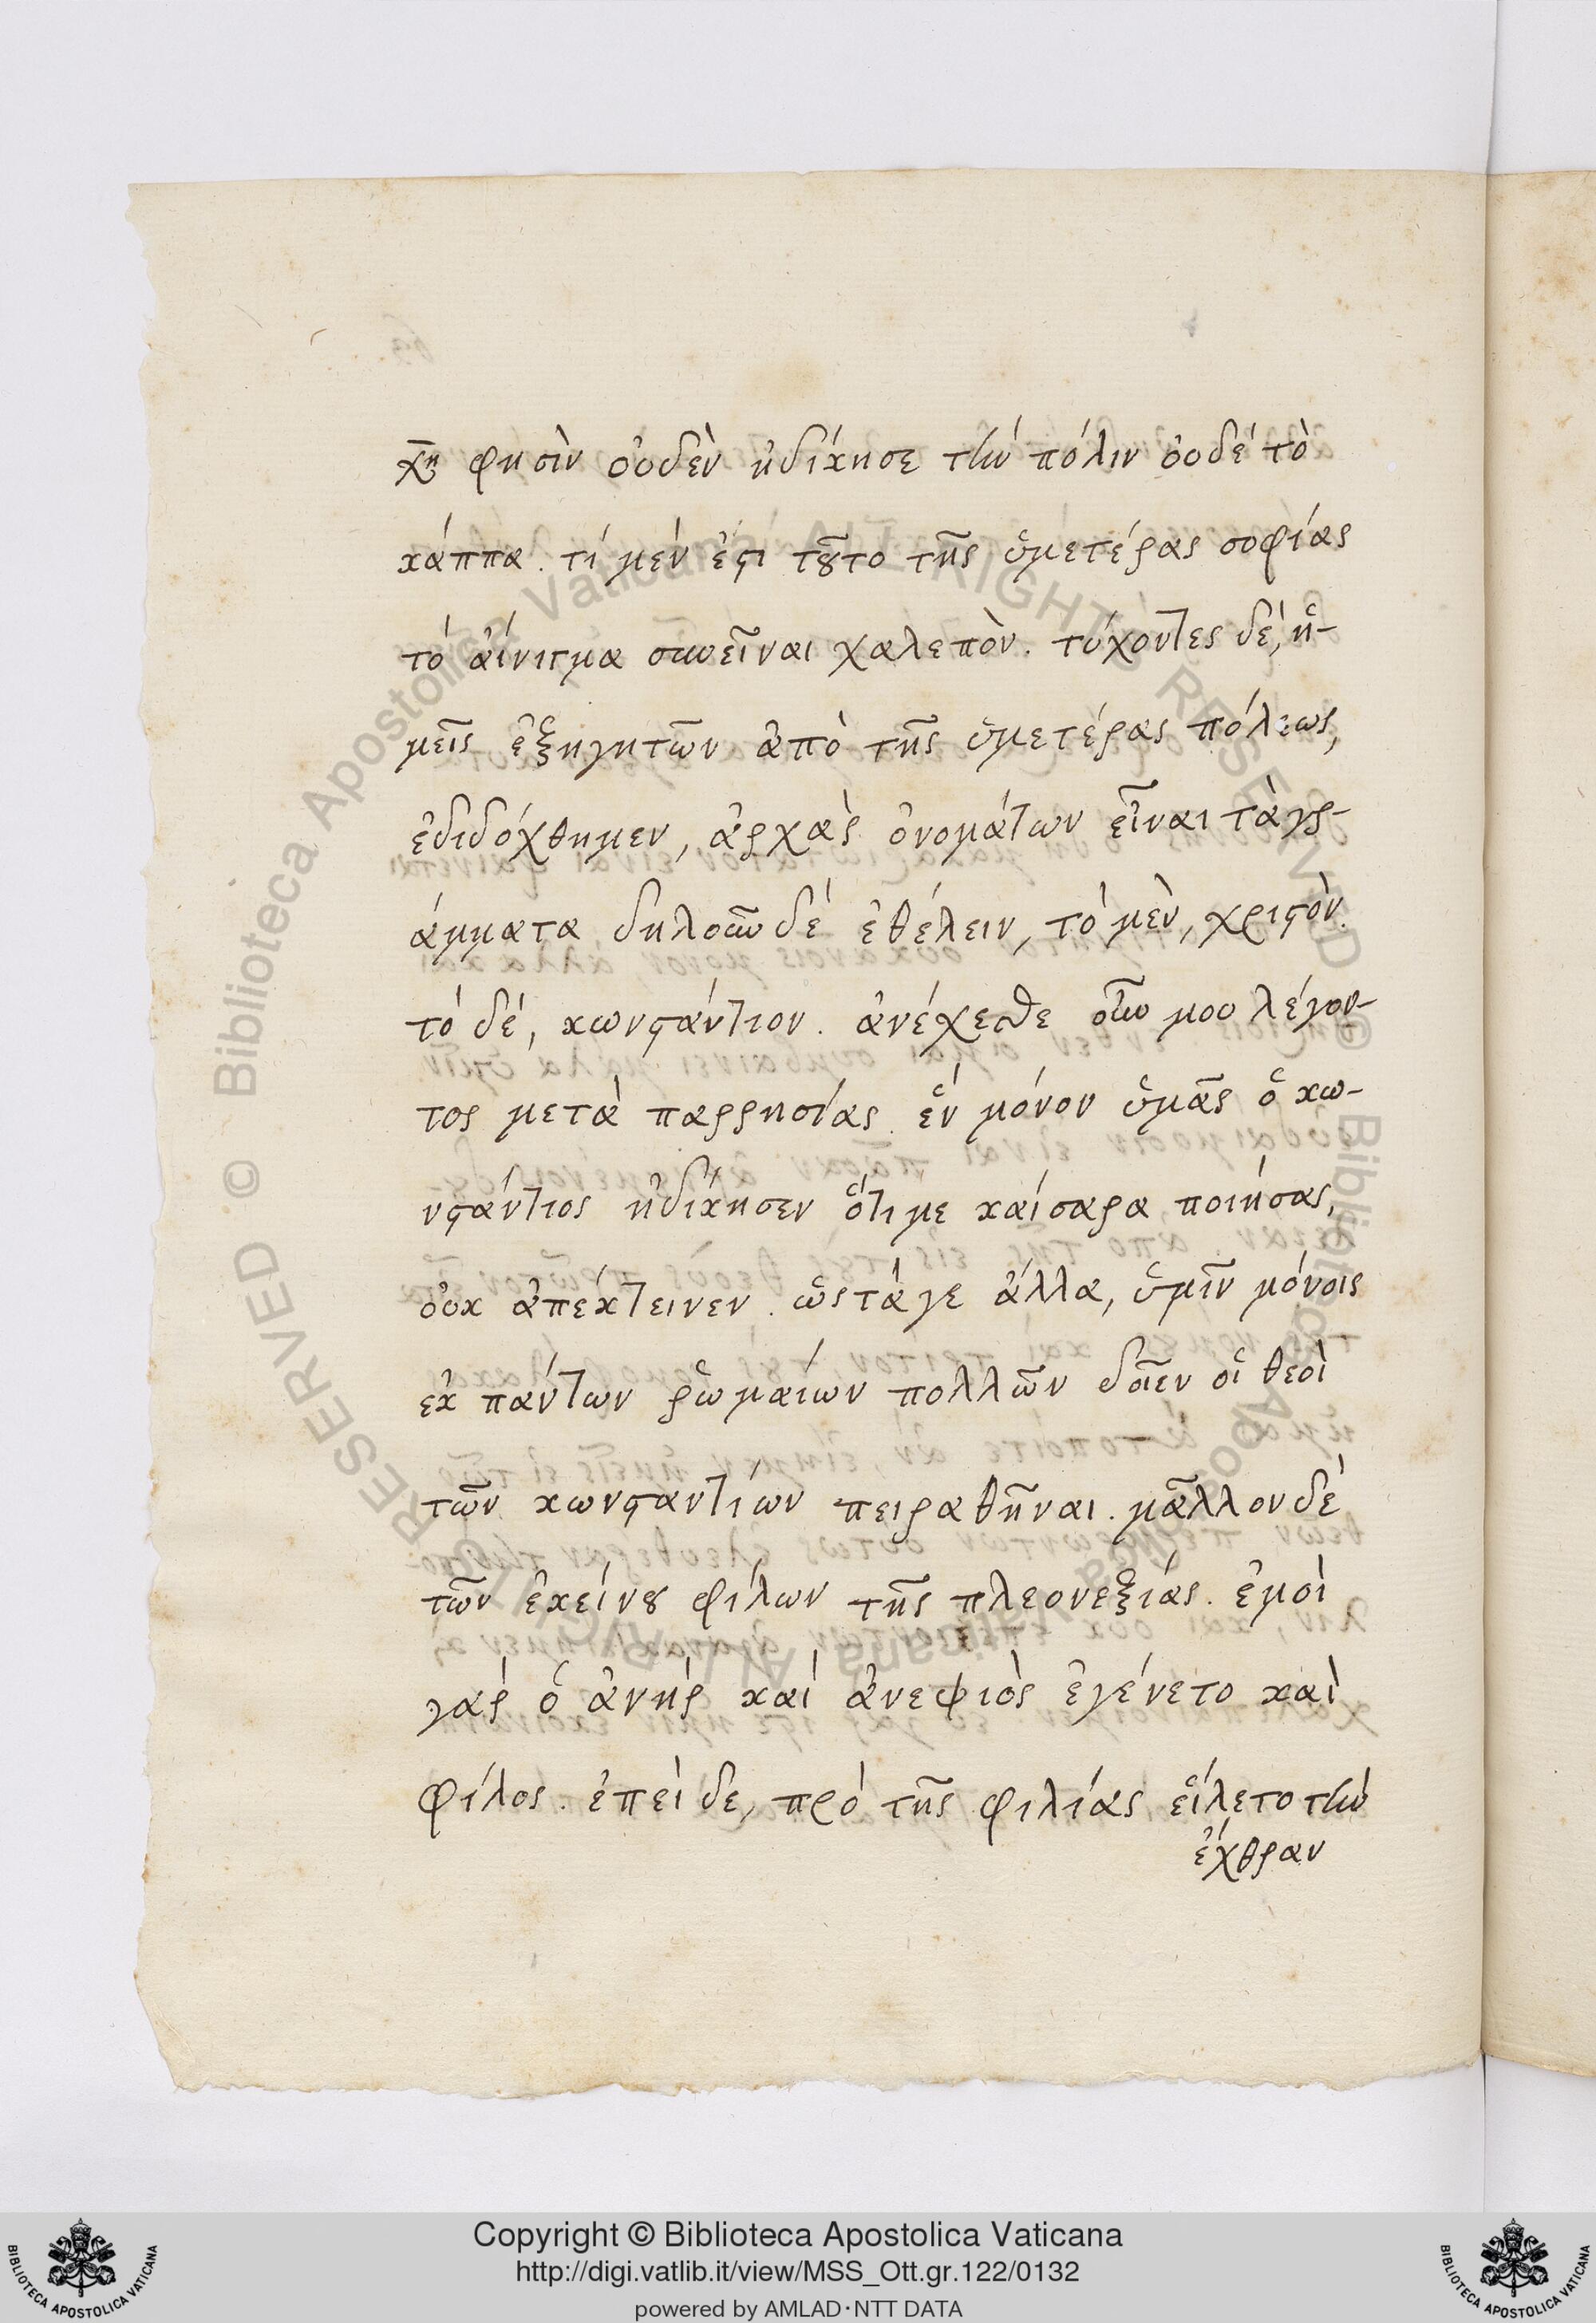 χῖ φησὶν οὐδὲν ἠδίκησε τὴν πόλιν οὐδέ τὸ
κάππα. τί μέν ἐστι τοῦτο τῆς ὑμετέρας σοφίας
τό αἴνιγμα συνεῖναι χαλεπὸν. τύχόντες δέ, ἡ-
μεῖς ἐξηγητῶν ἀπὸ τῆς ὑμετέρας πόλεως,
ἐδιδόχθημεν, ἀρχὰς ὀνομάτων εἶναι τὰ γρ-
άμματα δηλοῦν δέ ἐθέλειν, τό μὲν, χριστὸν.
τό δέ, κωνστάντιον. ἀνέχεσθε οὖν μου λέγον-
τος μετὰ παρρησίας. ἕν μόνον ὑμᾶς ὁ κω-
νστάντιος ἠδίκησεν ὅτι με καίσαρα ποιήσας,
οὐκ ἀπέκτεινεν. ὥς τά γε ἄλλα, ὑμῖν μόνοις
ἐκ πάντων ῥωμαίων πολλῶν δοῖεν οἱ θεοὶ
τῶν κωνσταντίων πειραθῆναι. μᾶλλον δέ
τῶν ἐκείνου φίλων τῆς πλεονεξίας. ἐμοὶ
γάρ ὁ ἀνήρ καί ἀνεψιὸς ἐγένετο καὶ
φίλος. ἐπεὶ δε, πρό τῆς φιλίας εἵλετο τὴν
ἔχθραν
Copyright © Biblioteca Apostolica Vaticana
http://digi.vatlib.it/view/MSS_Ott.gr.122/0132
powered by AMLAD·NTT DATA